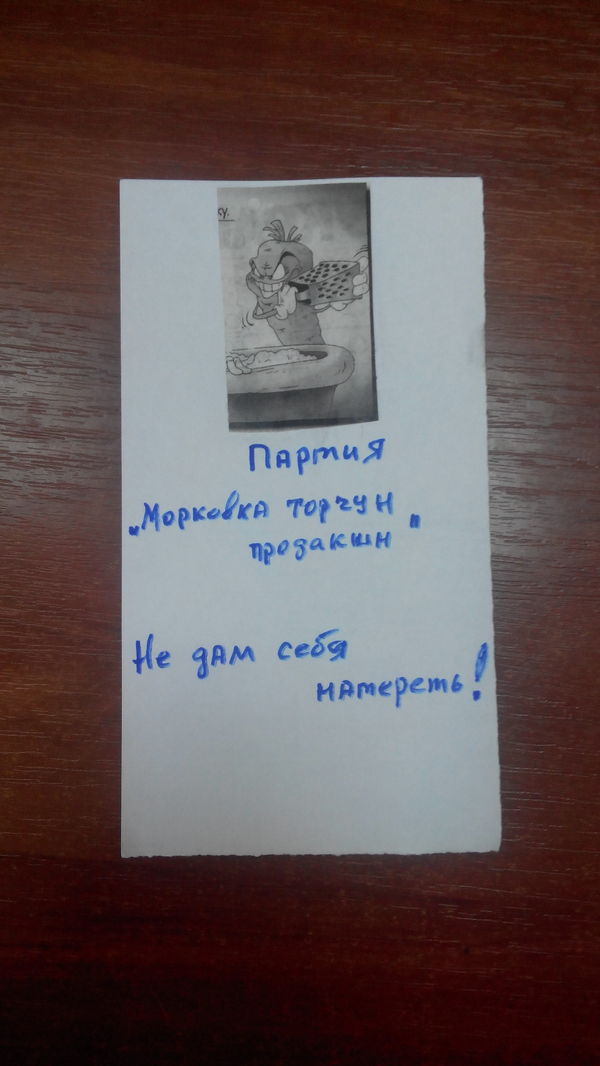 ку.
Партия
"Морковка торчун
продакшн"
Не дам себя
натереть!